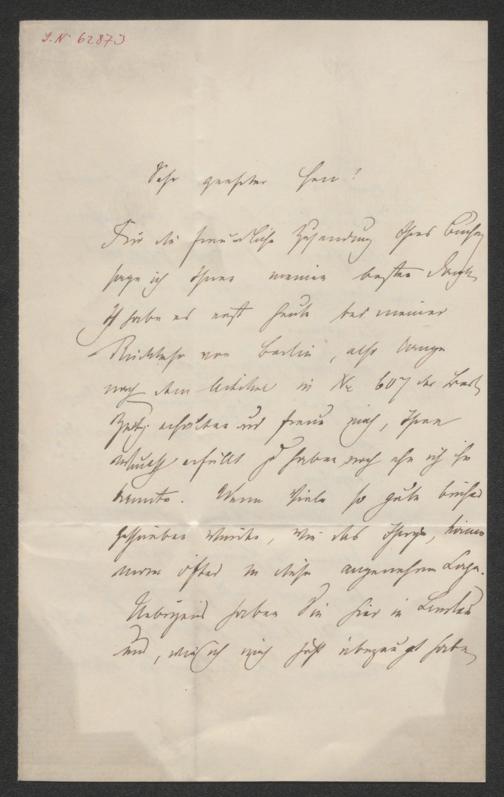 I. N 62873
Sehr geehrter Herr!
Für die freundliche Zusendung Ihres Buches
sage ich Ihnen meinen besten Dank.
Ich habe es erst heute bei meiner
Rückkehr von Berlin, also lange
nach dem Artikel in № 607 der Berl.
Ztg. erhalten und freue mich, Ihren
Wunsch erfüllt zu haben noch ehe ich ihn
kannte. Wenn viele so gute Bücher
geschrieben würden, wie das Ihrige, käme
man öfter in diese angenehme Lage.
Uebrigens haben Sie hier in
und, wie ich mich überzeugt habe,